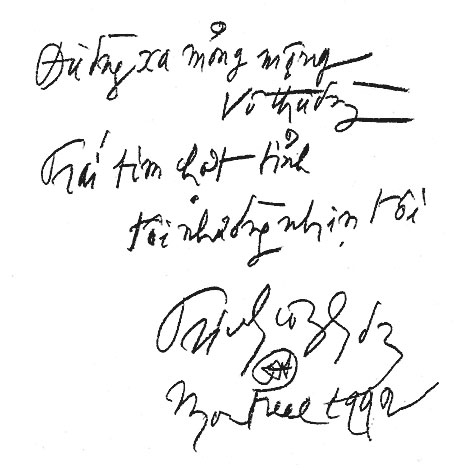 Đường xa mỏng mộng
Vô thường
Trái tim chợt tỉnh
tôi nhường nhịn tôi
Trịnh Công Sơn
Montreal 1992